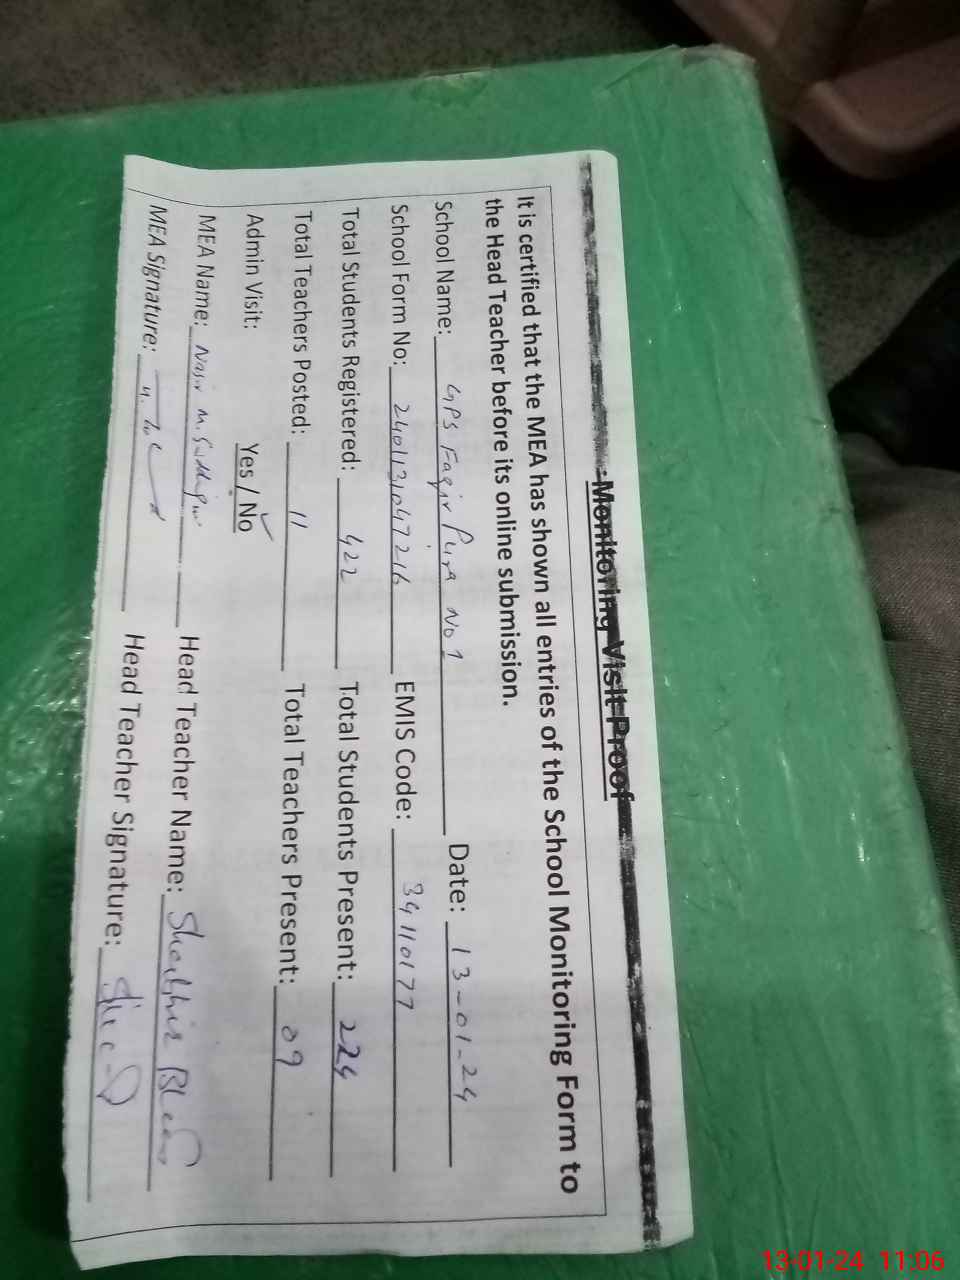 Monitoring Visit Proof
It is certified that the MEA has shown all entries of the School Monitoring Form to
the Head Teacher before its online submission.
School Name: GPS Faqir Pura No 1 Date: 13-01-24
School Form No: 2401131047216 EMIS Code: 34110177
Total Students Registered: 422 Total Students Present: 224
Total Teachers Posted: 11 Total Teachers Present: 09
Admin Visit: Yes / No
MEA Name: Nasir M. Head Teacher Name:
MEA Signature: Head Teacher Signature:
13-01-24 11:06